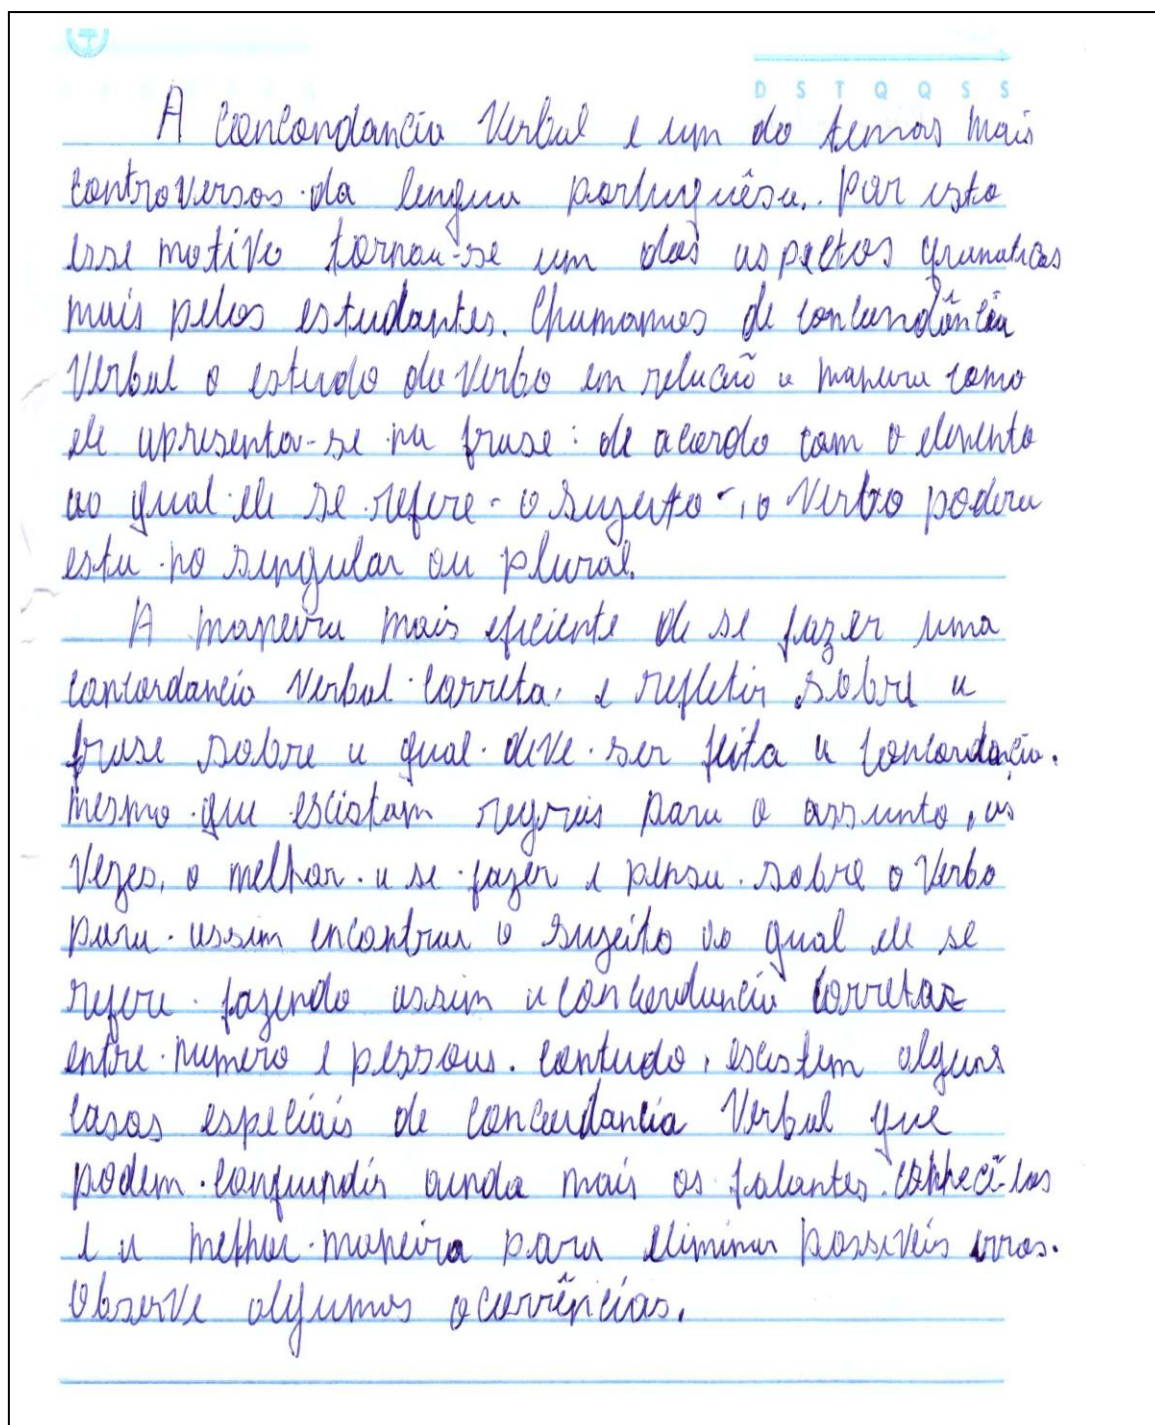 D S T Q Q S S
A concordancia Verbal e um do temas mais
controversos da lengua portuguêsa. Por isto
esse motivo tornou-se um dos aspectos gramaticas
mais pelos estudantes. Chamamos de concordância
Verbal o estudo do Verbo em relacão a maneira como
ele apresenta-se na frase: de acordo com o elemento
ao qual ele se refere - o sugeito -, o Verbo podera
esta no singular ou plural.
A maneira mais eficiente de se fazer uma
concordancia Verbal correta, e refletir sobre a
frase sobre a qual deve ser feita a concordancia.
mesmo que escistam regrais para o assunto, as
Vezes, o melhor a se fazer e pensa sobre o Verbo
para assim encontrar o sugeito ao qual ele se
refere fazendo assim a concordancia corretaz
entre numero e pessoas. contudo, escistem alguns
casos especiais de concordancia Verbal que
podem confundir ainda mais os falantes. conhecê-los
e a melhor maneira para eliminar possiveis erros.
Observe algumas ocorrências.